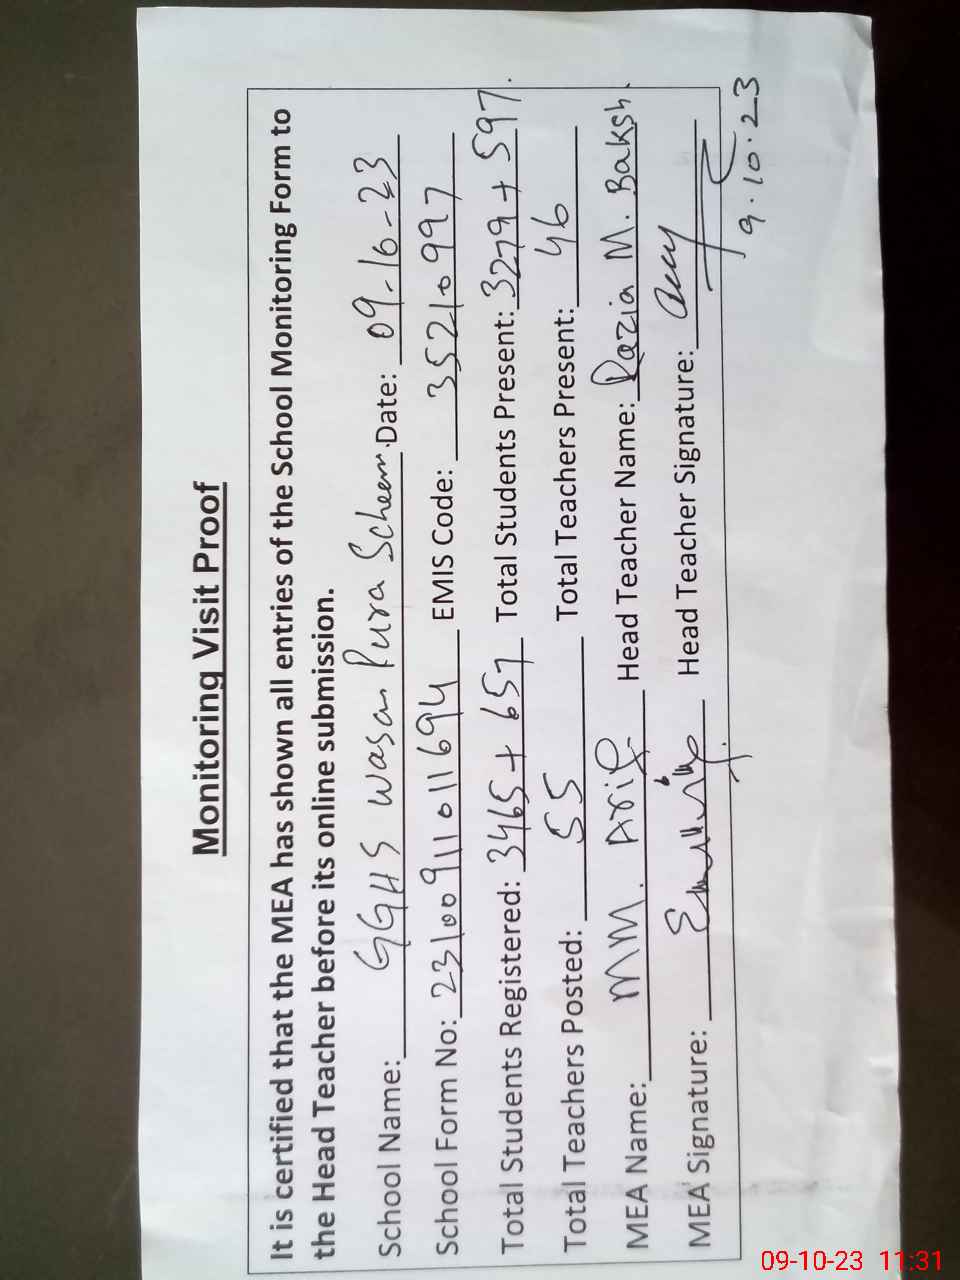 Monitoring Visit Proof
It is certified that the MEA has shown all entries of the School Monitoring Form to
the Head Teacher before its online submission.
School Name: GGHS Wasan Pura Scheem. Date: 09-10-23
School Form No: 23100911011694 EMIS Code: 35210997
Total Students Registered: 3465 + 657 Total Students Present: 3279 + 597.
Total Teachers Posted: 55 Total Teachers Present: 46
MEA Name: MM. Arif Head Teacher Name: Razia M. Baksh.
MEA Signature: Head Teacher Signature:
9.10.23
09-10-23 11:31